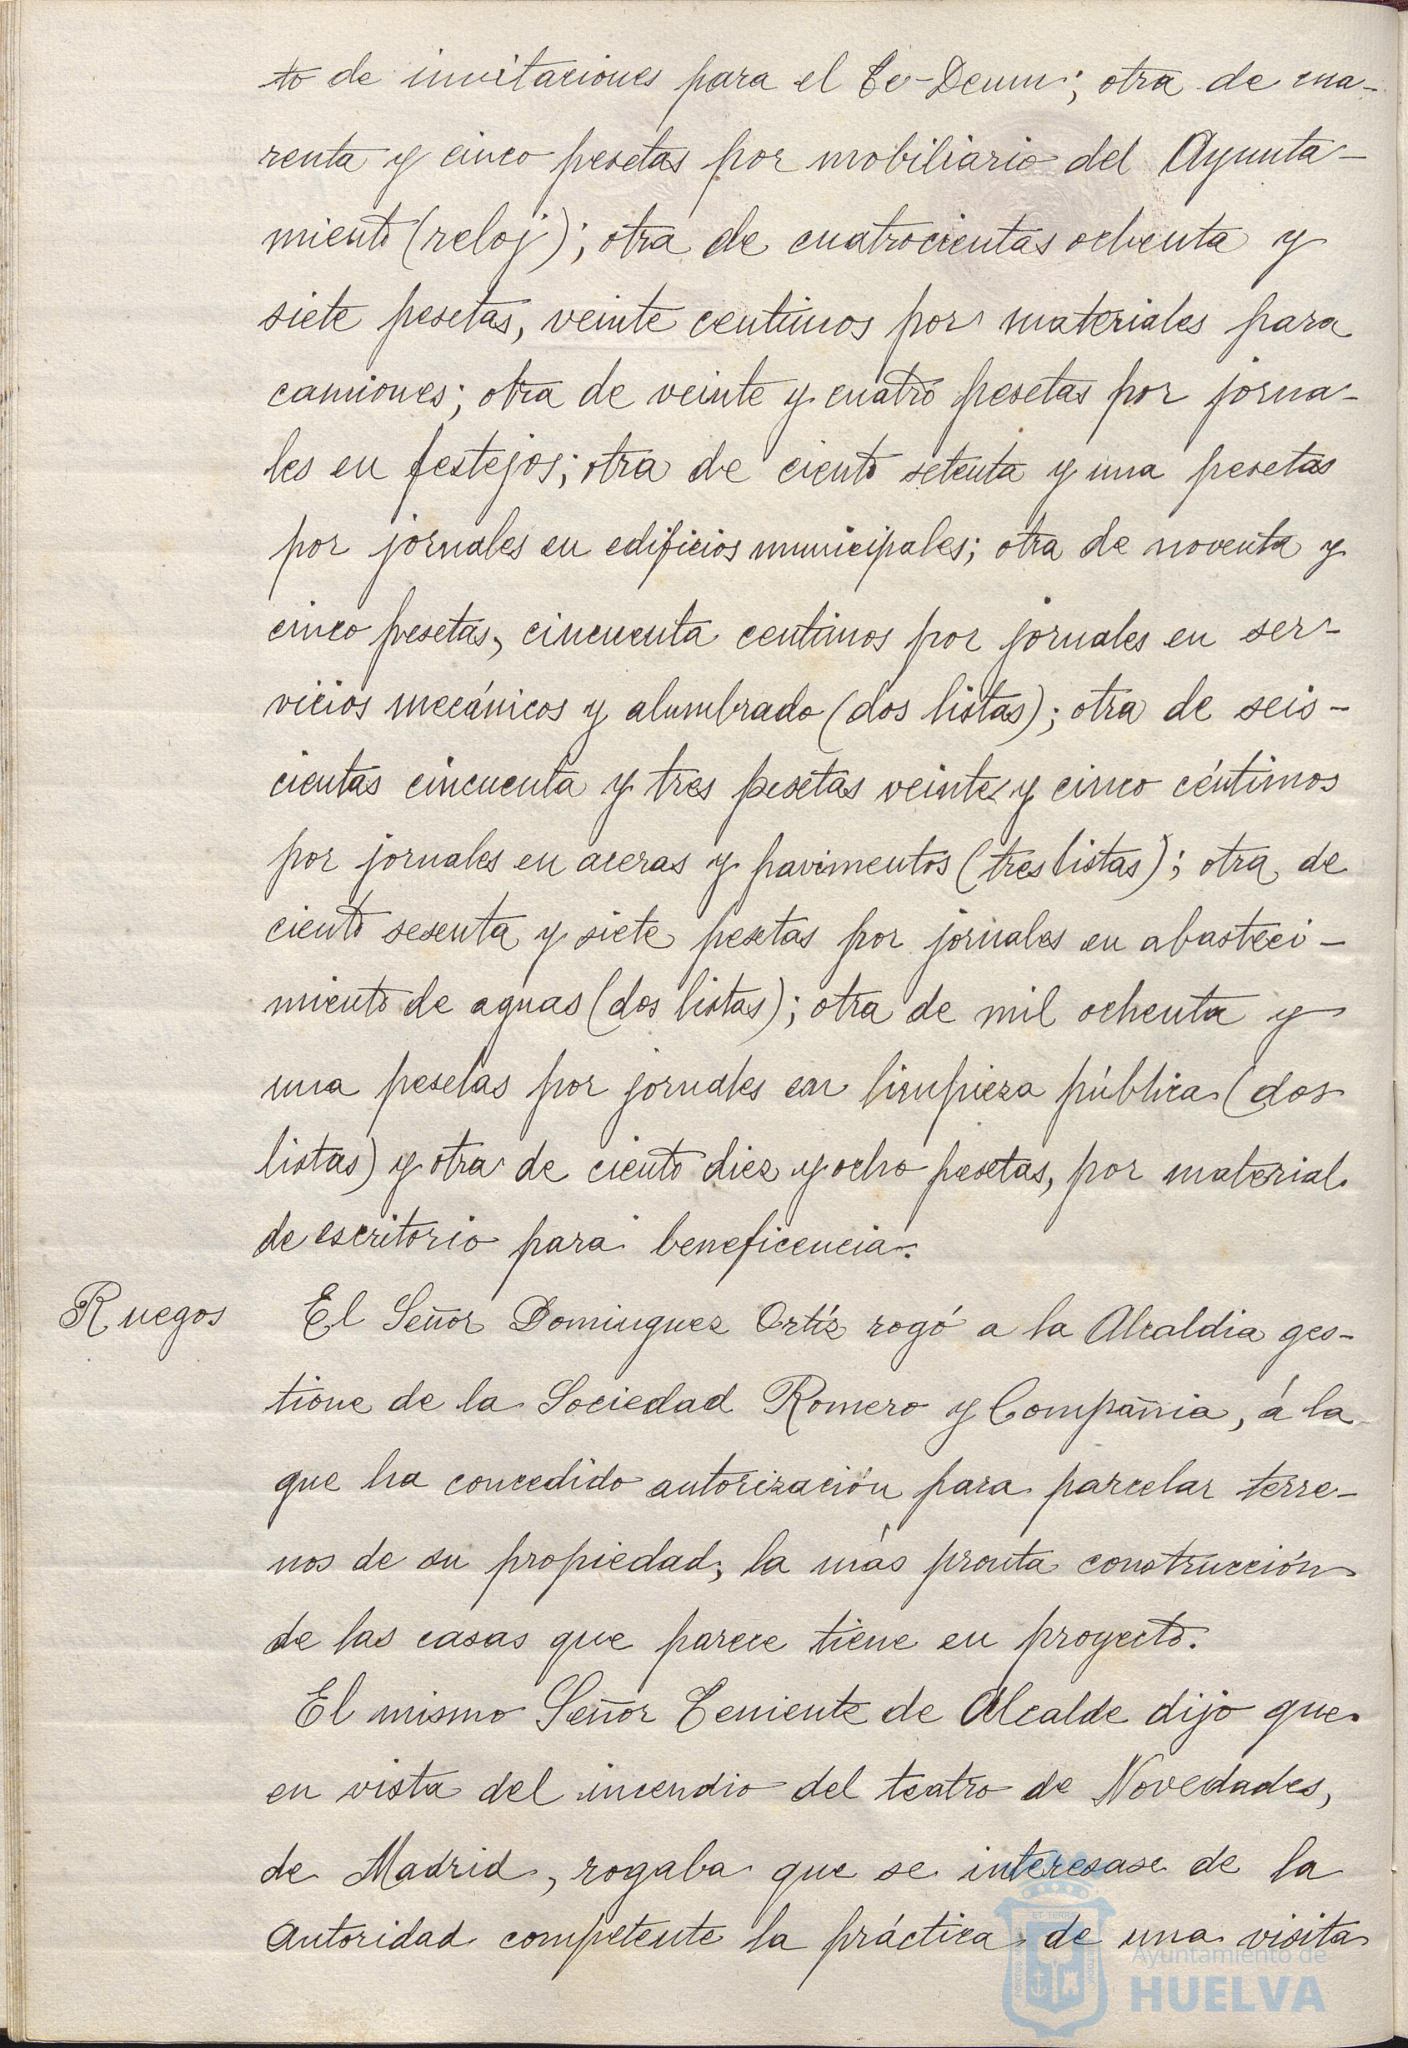 to de invitaciones para el Te-Deum; otra de cua-
renta y cinco pesetas por mobiliario del Ayunta-
miento (reloj); otra de cuatrocientas ochenta y
siete pesetas, veinte centimos por materiales para
camiones; otra de veinte y cuatro pesetas por jorna-
les en festejos; otra de ciento setenta y una pesetas
por jornales en edificios municipales; otra de noventa y
cinco pesetas, cincuenta centimos por jornales en ser-
vicios mecánicos y alumbrado (dos listas); otra de seis-
cientas cincuenta y tres pesetas veinte y cinco céntimos
por jornales en aceras y pavimentos (tres listas); otra de
ciento sesenta y siete pesetas por jornales en abasteci-
miento de aguas (dos listas); otra de mil ochenta y
una pesetas por jornales en limpieza pública (dos
listas) y otra de ciento diez y ocho pesetas, por material
de escritorio para beneficencia.
Ruegos
El Señor Dominguez Ortíz rogó a la Alcaldia ges-
tione de la Sociedad Romero y Compañia, á la
que ha concedido autorización para parcelar terre-
nos de su propiedad, la más pronta construcción
de las casas que parece tiene en proyecto.
El mismo Señor Teniente de Alcalde dijo que
en vista del incendio del teatro de Novedades,
de Madrid, rogaba que se interesase de la
autoridad competente la práctica de una visita
Ayuntamiento de
HUELVA